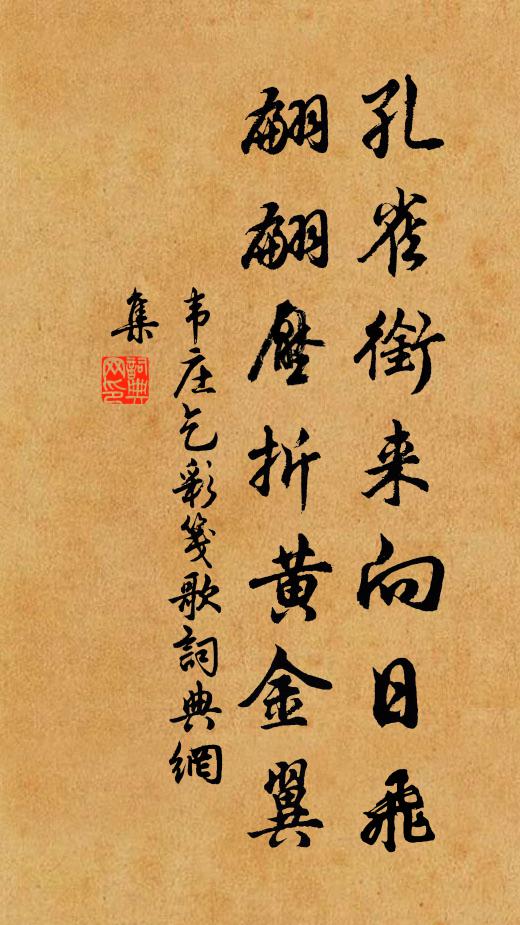 孔雀銜来向日飛
翩翩壓折黃金翼
韦庄乞彩箋歌詞典網
集
詞典
网印